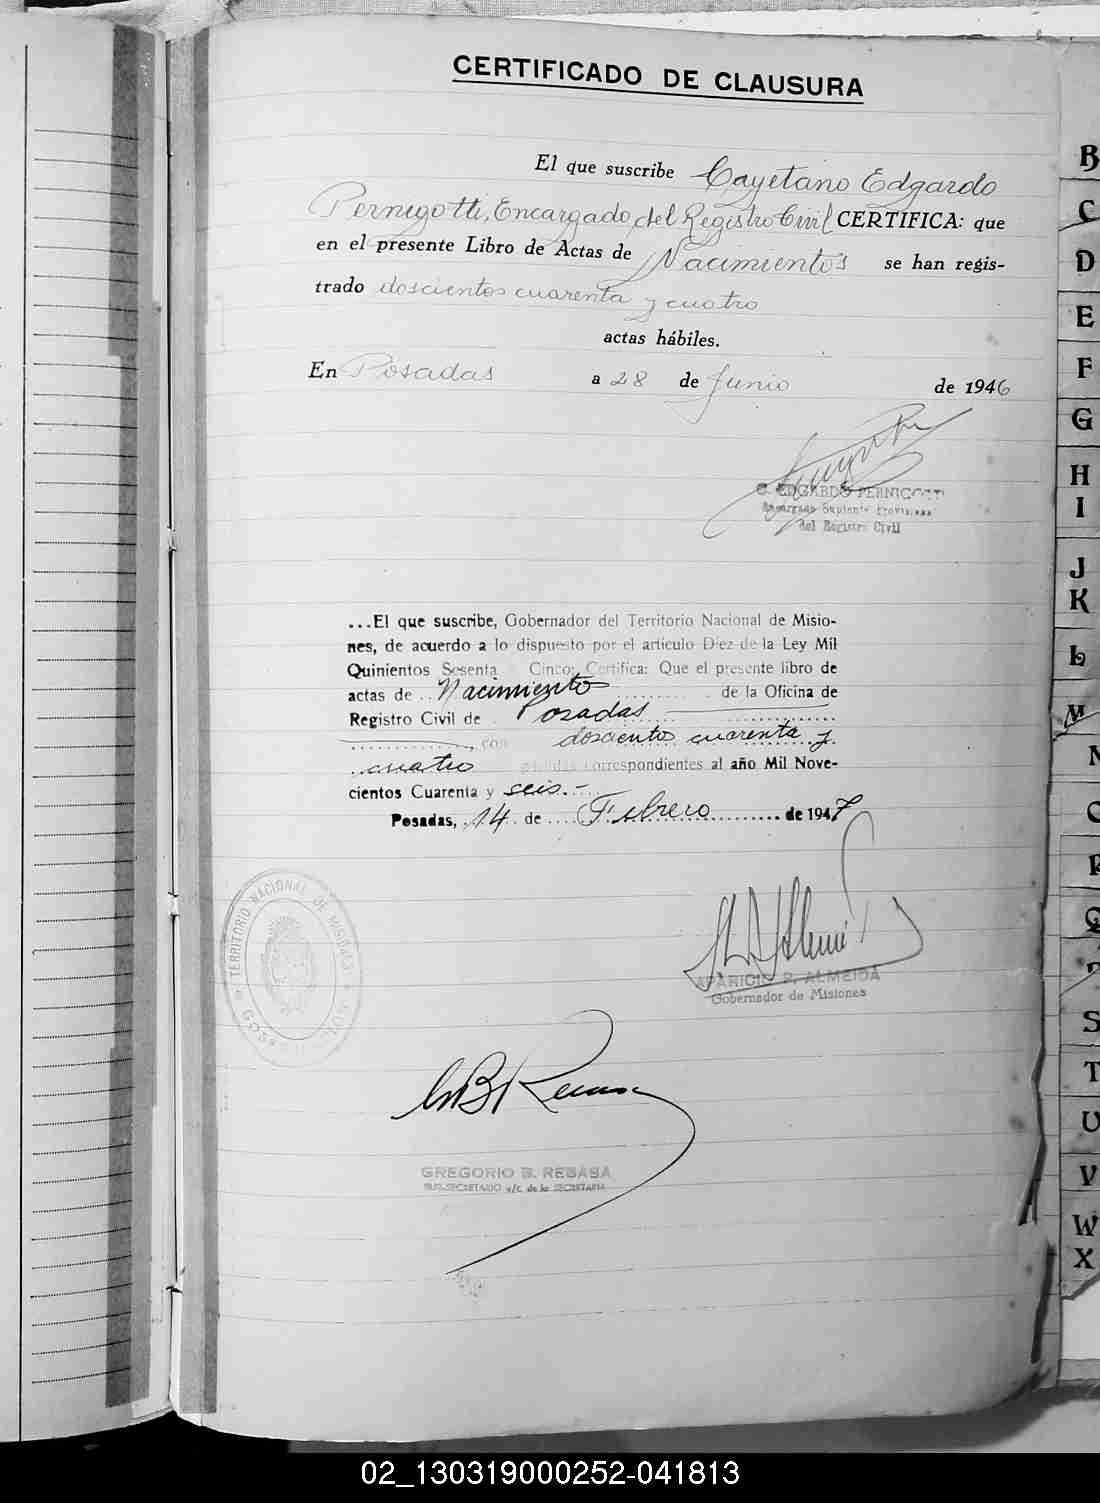 CERTIFICADO DE CLAUSURA
El que suscribe Cayetano Edgardo
Pernigotti, Encargado del Registro Civil CERTIFICA: que
en el presente Libro de Actas de Nacimientos se han regis-
trado doscientos cuarenta y cuatro
actas hábiles.
En Posadas a 28 de Junio de 1946
C. EDGARDO PERNIGOTTI
Encargado Suplente Provisional
del Registro Civil
...El que suscribe, Gobernador del Territorio Nacional de Misio-
nes, de acuerdo a lo dispuesto por el artículo Diez de la Ley Mil
Quinientos Sesenta Cinco; Certifica: Que el presente libro de
actas de Nacimientos de la Oficina de
Registro Civil de Posadas
, con dosciento cuarenta y
cuatro correspondientes al año Mil Nove-
cientos Cuarenta y seis.-
Posadas, 14 de Febrero de 1947
TERRITORIO NACIONAL DE MISIONES
APARICIO P. ALMEIDA
Gobernador de Misiones
GREGORIO B. REBASA
SUB-SECRETARIO a/c. de la SECRETARIA
B
C
D
E
F
G
H
I
J
K
L
M
N
O
P
Q
S
T
U
V
W
X
02_130319000252-041813